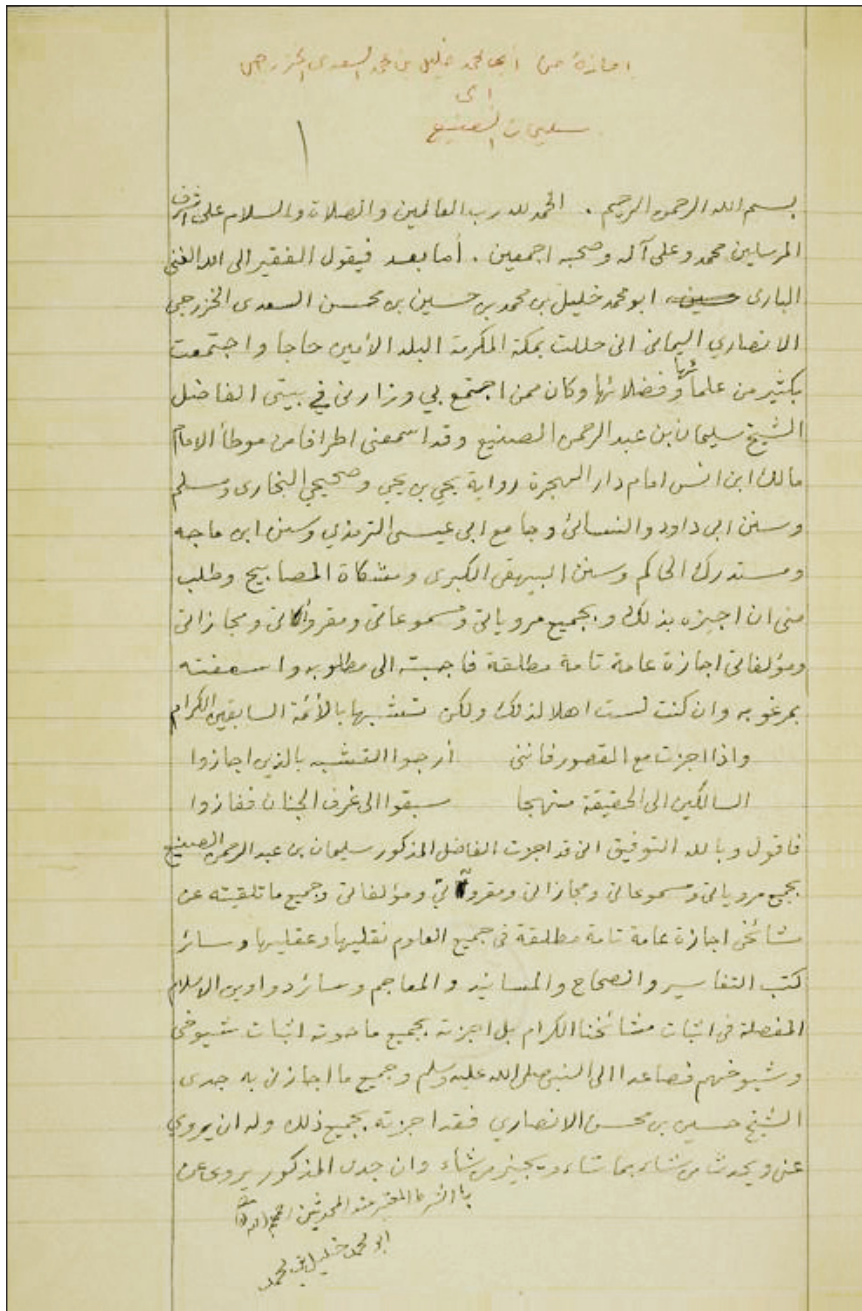 اجازة من ابي محمد خليل بن محمد السعدى الخزرجى
الى
سليمان الصنيع
١
بسم الله الرحمن الرحيم . الحمد لله رب العالمين والصلاة والسلام على اشرف
المرسلين محمد وعلى آله وصحبه اجمعين . أما بعد فيقول الفقير الى الله الغنى
البارى ابو محمد خليل بن محمد بن حسين بن محسن السعدى الخزرجي
الانصاري اليمانى انى حللت بمكة المكرمة البلد الأمين حاجا واجتمعت
بكثير من علمائها وفضلائها وكان ممن اجتمع بي وزارنى في بيتى الفاضل
الشيخ سليمان بن عبد الرحمن الصنيع وقد اسمعنى اطرافا من موطأ الامام
مالك ابن انس امام دار الهجرة رواية يحيي بن يحيي وصحيحي البخارى ومسلم
وسنن ابى داود والنسائ وجامع ابى عيسى الترمذي وسنن ابن ماجه
ومستدرك الحاكم وسنن البيهقى الكبرى ومشكاة المصابيح وطلب
منى ان اجيزه بذلك وبجميع مروياتى ومسموعاتى ومقروأتى ومجازاتى
ومؤلفاتى اجازة عامة تامة مطلقة فاجبته الى مطلوبه واسعفته
بمرغوبه وان كنت لست اهلا لذلك ولكن تشبها بالأئمة السابقين الكرام
واذا اجزت مع القصور فاننى أرجوا التشبه بالذين اجازوا
السالكين الى الحقيقة منهجا سبقوا الى غرف الجنان ففازوا
فاقول وبالله التوفيق انى قد اجزت الفاضل المذكور سليمان بن عبد الرحمن الصنيع
بجميع مروياتى ومسموعاتى ومجازاتى ومقروآتي ومؤلفاتى وجميع ما تلقيته عن
مشائخى اجازة عامة تامة مطلقة فى جميع العلوم نقليها وعقليها وسائر
كتب التفاسير والصحاح والمسانيد والمعاجم وسائر دواوين الاسلام
المفصلة فى اثبات مشائخنا الكرام بل اجزته بجميع ما حوته اثبات شيوخى
وشيوخهم فصاعدا الى النبى صلى الله عليه وسلم وجميع ما اجازنى به جدى
الشيخ حسين بن محسن الانصاري فقد اجزته بجميع ذلك وله ان يروي
عنى ويحدث من شاء بما شاء ويجيز من شاء وان جدى المذكور يروى عن
با الشرط المعتبر عند المحدثين
ابو محمد خليل بن محمد